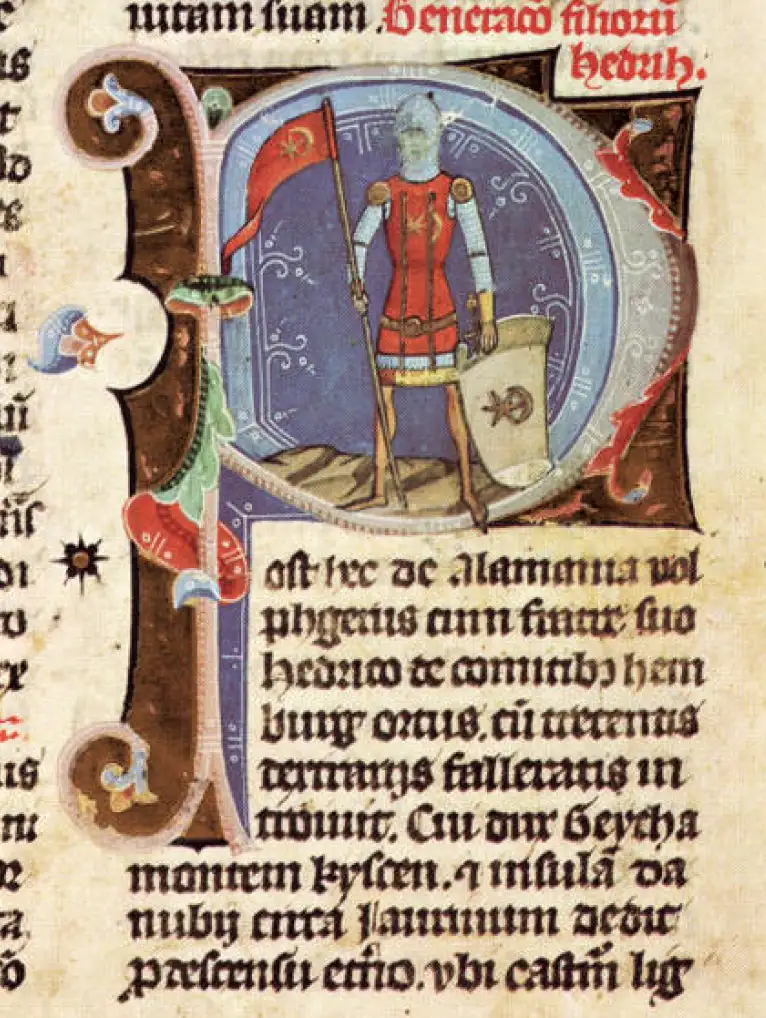 uitam suam. Generacō filiorū
hedrih.
Post hec de Alamania vol
phgerus cum fratre suo
hedrico de comitibꝫ hem
burg ortus. cū trecentis
dextrarijs falleratis in
troiuit. Cui dux Geycha
montem kyscen. ⁊ insulā da
nubij circa Jaurinum dedit
ꝓ descensu et̄no. vbi castrū lig